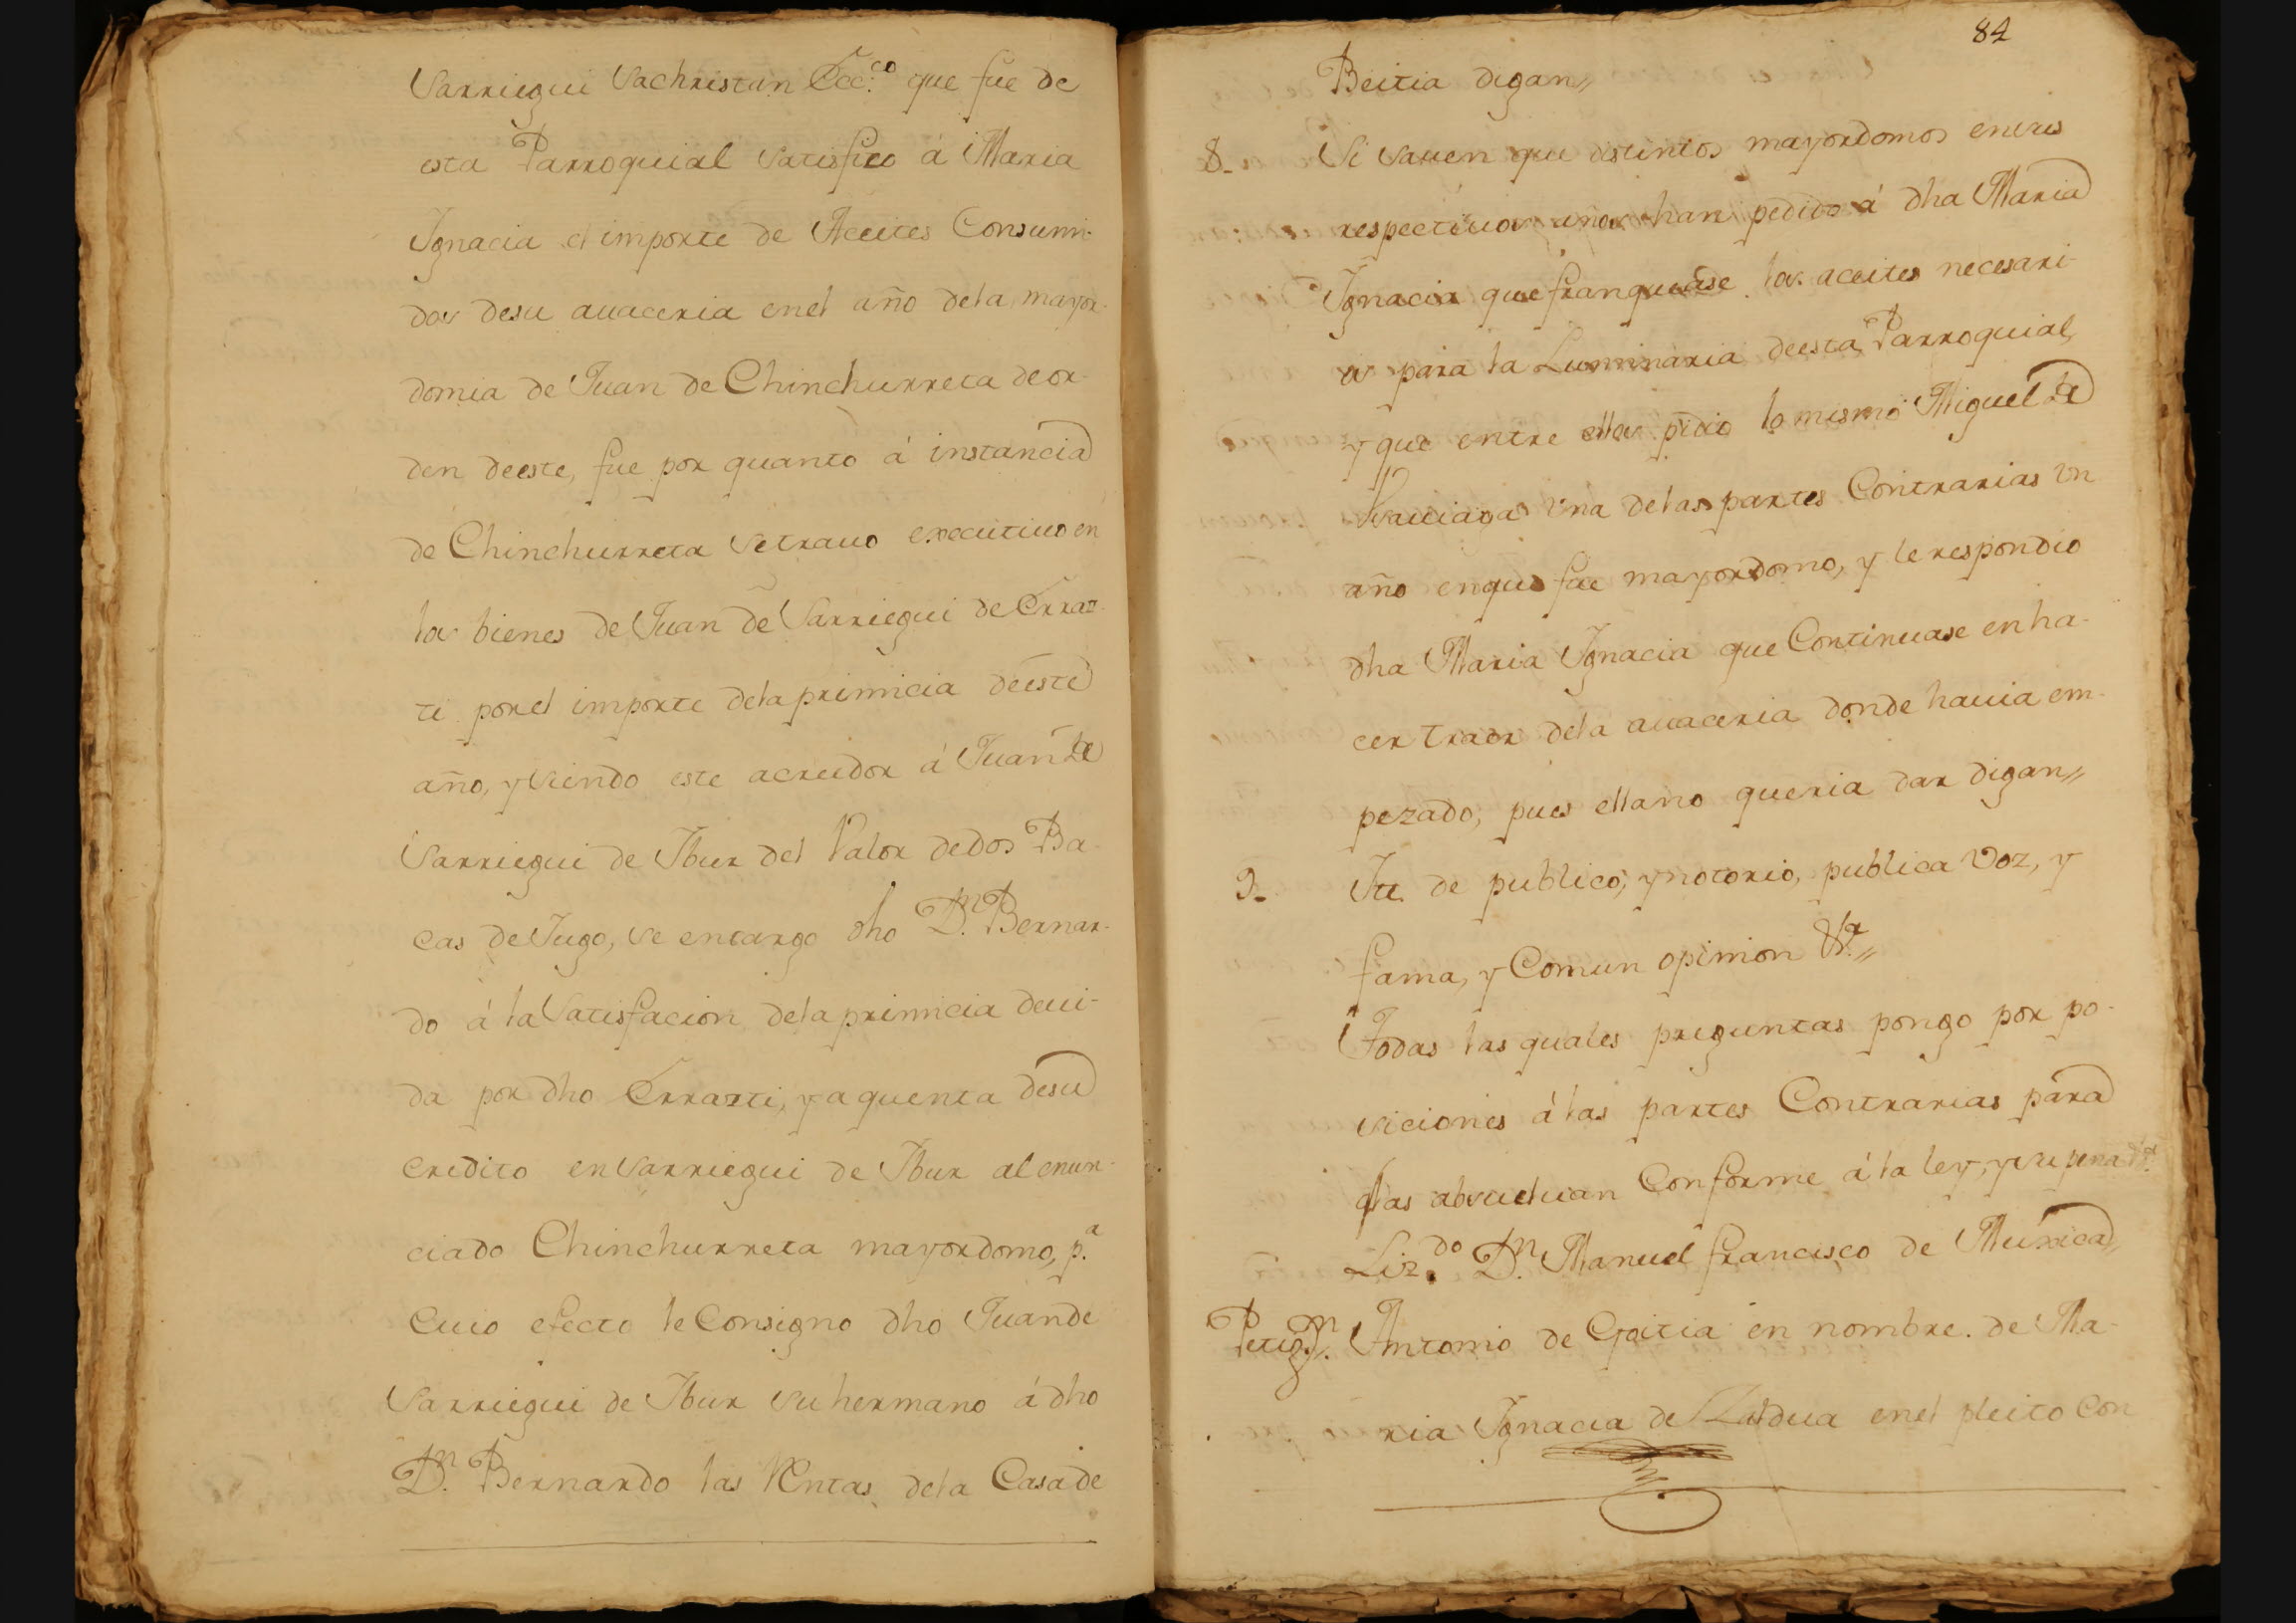 Sarriegui Sachristan Ecc.co que fue de
esta Parroquial satisfizo á Maria
Ignacia el importe de Aceites Consumi-
dos desu avaceria enel año dela mayor-
domia de Juan de Chinchurreta de or-
den deeste, fue por quanto á instancia
de Chinchurreta setravo executivo en
los bienes de Juan de Sarriegui de Erraz-
ti porel importe dela primicia deeste
año, y siendo este acreedor á Juan de
Sarriegui de Ibur del Valor dedos Ba-
cas de Jugo, se encargo dho D.n Bernar-
do á la Satisfacion dela primicia devi-
da por dho Errazti, y a quenta desu
credito en Sarriegui de Ibur al enun-
ciado Chinchurreta mayordomo, p.a
cuio efecto le Consigno dho Juan de
Sarriegui de Ibur su hermano á dho
D.n Bernardo las Rentas dela Casa de
84
Beitia digan//
8_ Si saven que distintos mayordomos en sus
respectivos años han pedido á dha Maria
Ignacia que franquease los aceites necesari-
os para la Luminaria deesta Parroquial,
y que entre ellos pidio lo mismo Miguel de
una delas partes Contrarias un
año enque fue mayordomo, y le respondio
dha Maria Ignacia que Continuase en ha-
cer traer dela avaceria donde havia em-
pezado; pues ellano queria dar digan//
9_ Itt. de publico, y notorio, publica voz, y
fama, y Comun opinion &a.//
Todas las quales preguntas pongo por po-
siciones á las partes Contrarias para
q.e las absuelvan Conforme á la ley, y su pena &a.
Liz.do D.n Manuel francisco de Muxica//
Petiz.n Antonio de Goitia en nombre de Ma-
ria Ignacia de Zaldua enel pleito con